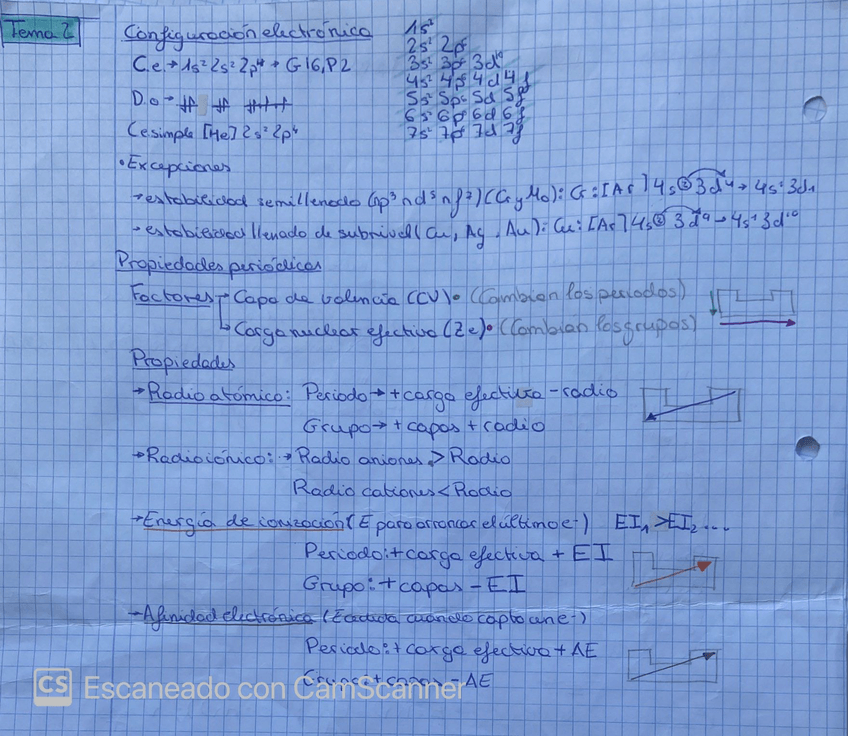 Tema 2
Configuración electrónica
1s²
2s² 2p⁶
3s² 3p⁶ 3d¹⁰
4s² 4p⁶ 4d 4f
5s² 5p⁶ 5d 5f
6s² 6p⁶ 6d 6f
7s² 7p⁶ 7d 7f
C.e.→ 1s² 2s² 2p⁴ → G16, P2
D.o→
Ce simple [He] 2s² 2p⁴
• Excepciones
→ estabilidad semillenado (np³ nd⁵ nf⁷) (Cr y Mo): Cr: [Ar] 4s② 3d⁴ → 4s¹ 3d
→ estabilidad llenado de subnivel (Cu, Ag, Au): Cu: [Ar] 4s② 3d⁹ → 4s¹ 3d¹⁰
Propiedades periódicas
Factores → Capa de valencia (CV) • (Cambian los periodos)
→ Carga nuclear efectiva (Ze) • (Cambian los grupos)
Propiedades
→ Radio atómico: Periodo → + carga efectiva - radio
Grupo → + capas + radio
→ Radio iónico: → Radio aniones > Radio
Radio cationes < Radio
→ Energía de ionización (E para arrancar el último e-) EI₁ > EI₂ ...
Periodo: + carga efectiva + EI
Grupo: + capas - EI
→ Afinidad electrónica (E cedida cuando capta un e-)
Periodo: + carga efectiva + AE
Grupo: + capas - AE
CS Escaneado con CamScanner